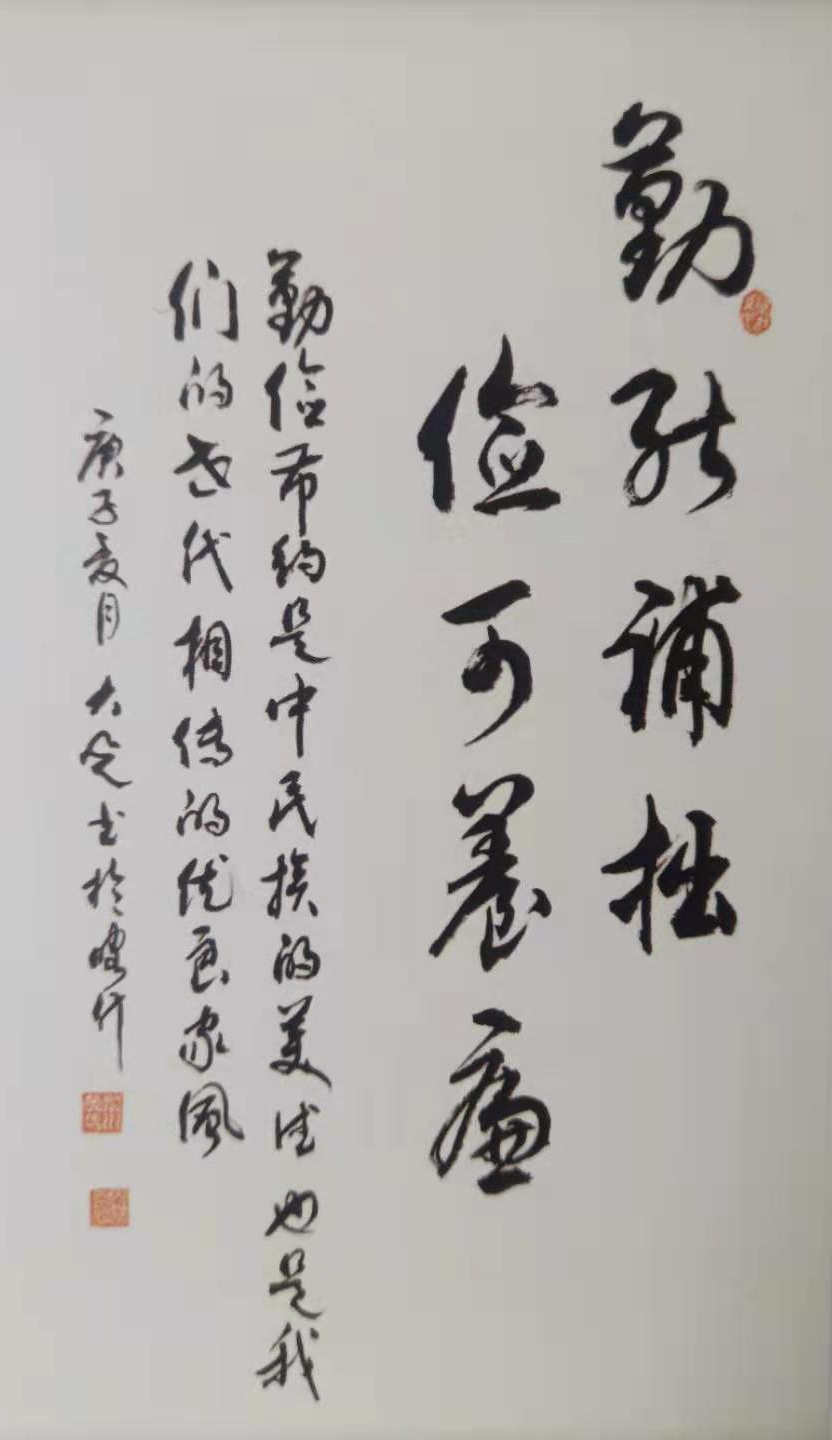 勤能補拙
儉可養廉
勤儉节约是中民族的美德也是我
们的世代相传的优良家风
庚子夏月大 书於 竹